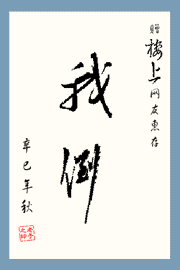 赠
楼上网友惠存
我倒
辛巳年秋